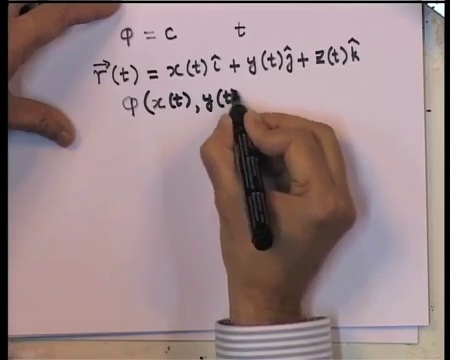 φ = c t
r⃗(t) = x(t)î + y(t)ĵ + z(t)k̂
φ(x(t), y(t)